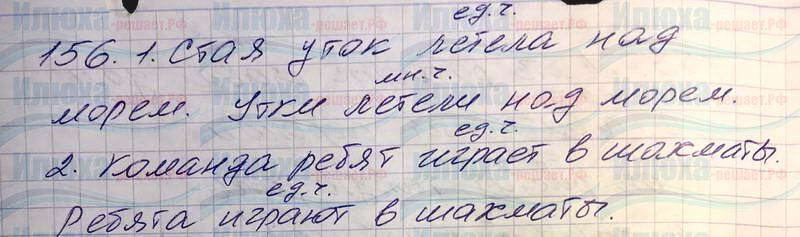 ед.ч.
156. 1. Стая уток летела над
мн.ч.
морем. Утки летели над морем.
ед.ч.
2. Команда ребят играет в шахматы.
ед.ч.
Ребята играют в шахматы.
Илюха
-решает.РФ